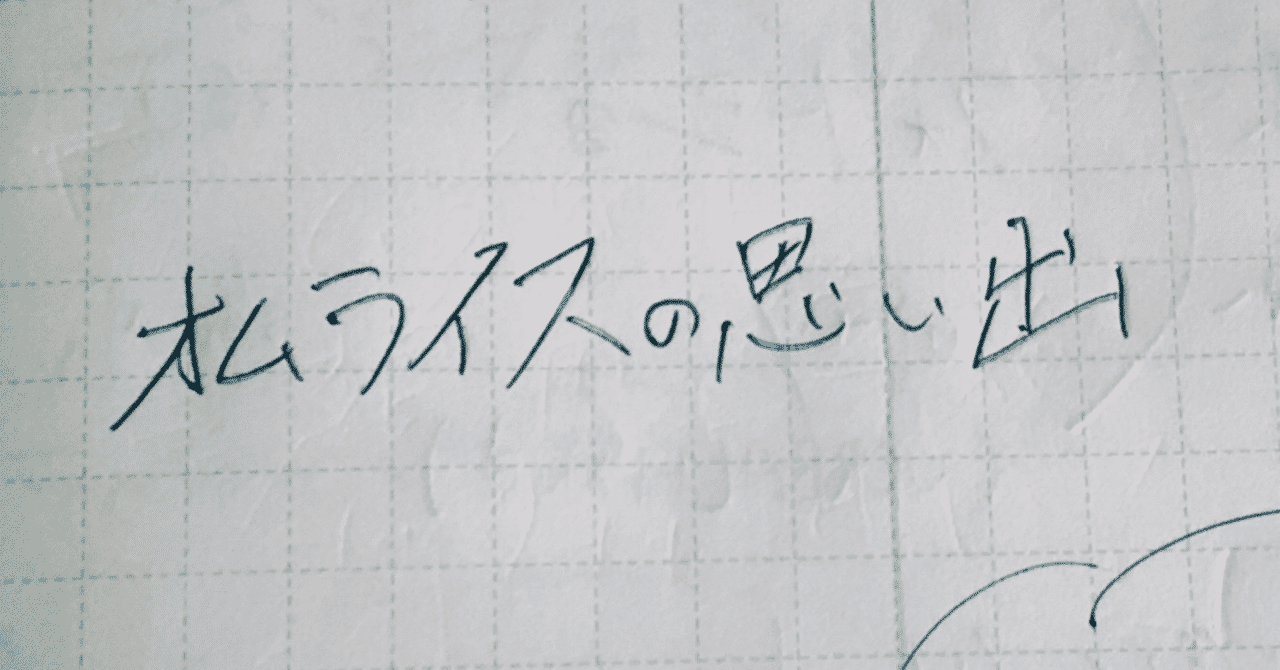 オムライスの思い出